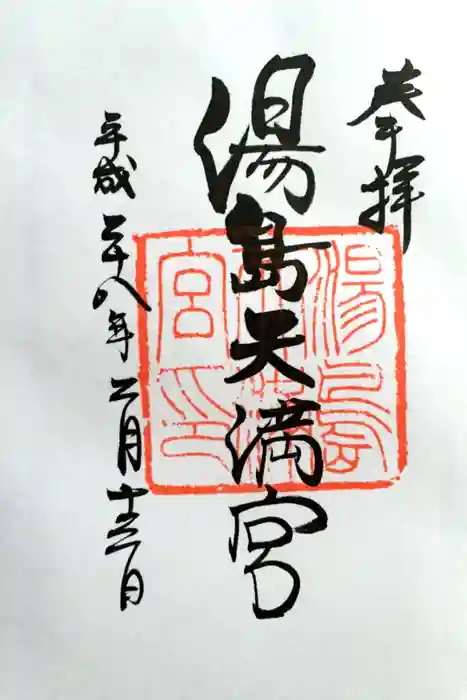 奉拝
湯島天満宮
平成二十八年二月十三日
湯島
天満
宮印